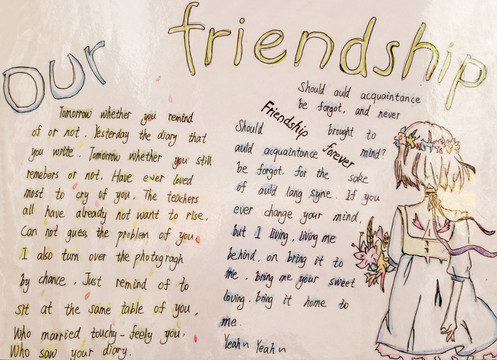 Our friendship
Tomorrow whether you remind
of or not. Yesterday the diary that
you write. Tomorrow whether you still
remebers or not. Have ever loved
most to cry of you. The teachers
all have already not want to rise.
Can not guess the problem of you.
I also turn over the photogragh
by chance, Just remind of to
sit at the same table of you,
Who married touchy-feely you,
Who saw your diary.
Should auld acquaintance
be forgot, and never
Friendship forever
Should brought to
auld acquaintance mind?
be forgot. for the sake
of auld lang syne. If you
ever change your mind,
but I living, living me
behind. oh bring it to
me. bring me your sweet
loving. bring it home to
me.
Yeah~ Yeah~